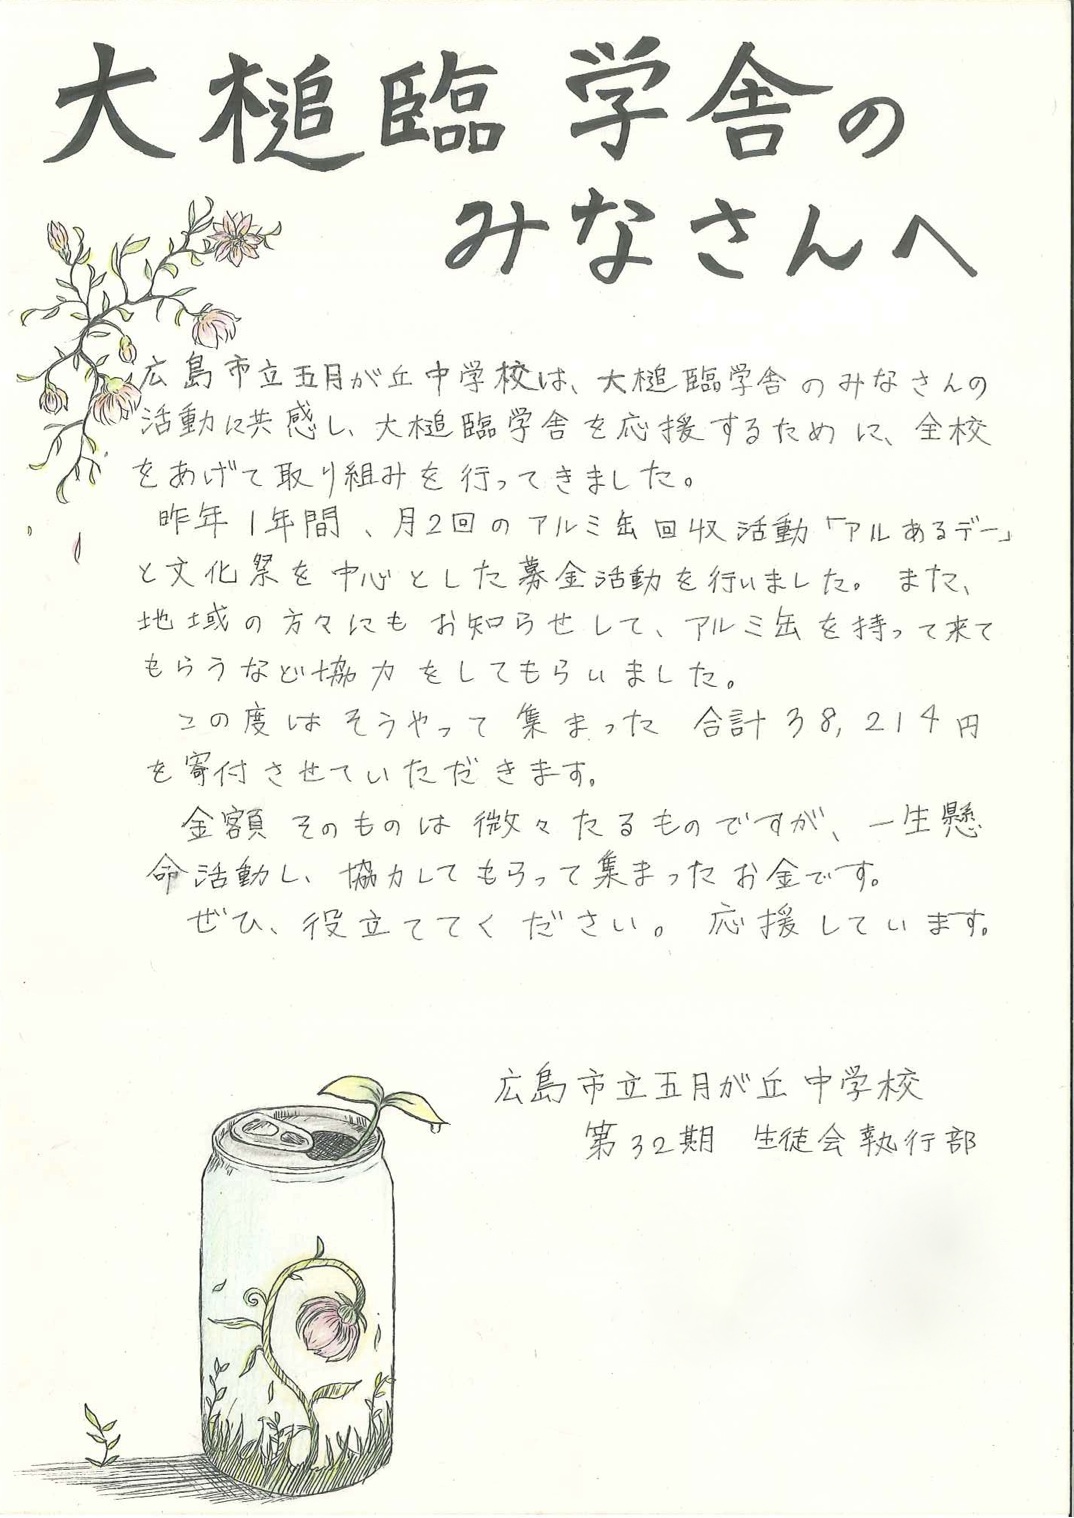 大槌臨学舎の
みなさんへ
広島市立五月が丘中学校は、大槌臨学舎のみなさんの
活動に共感し、大槌臨学舎を応援するために、全校
をあげて取り組みを行ってきました。
昨年1年間、月2回のアルミ缶回収活動「アルあるデー」
と文化祭を中心とした募金活動を行いました。また、
地域の方々にもお知らせして、アルミ缶を持って来て
もらうなど協力をしてもらいました。
この度はそうやって集まった合計38,214円
を寄付させていただきます。
金額そのものは微々たるものですが、一生懸
命活動し、協力してもらって集まったお金です。
ぜひ、役立ててください。応援しています。
広島市立五月が丘中学校
第32期 生徒会執行部